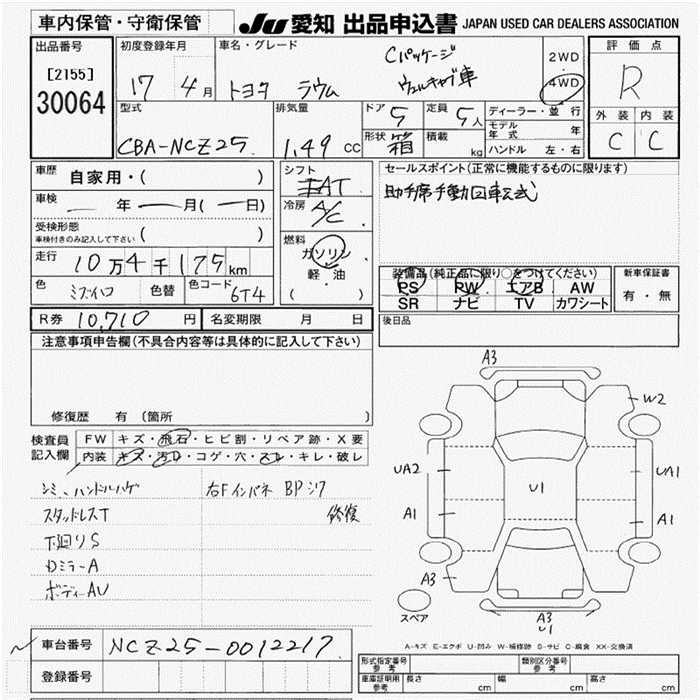 車内保管・守衛保管 JU 愛知 出品申込書 JAPAN USED CAR DEALERS ASSOCIATION
出品番号 初度登録年月 車名・グレード 評価点
[2155] 17 4月 トヨタ ラウム Cパッケージ 2WD R
30064 ウェルキャブ車 4WD
型式 排気量 ドア 5 定員 5人 ディーラー・並行 外装 内装
CBA-NCZ25 1.49 CC 形状 箱 積載 kg モデル年式 年 C C
ハンドル 左・右
車歴 自家用・( ) シフト FAT セールスポイント(正常に機能するものに限ります)
車検 ― 年 ― 月(― 日) 冷房 A/C 助手席手動回転式
受検形態 ( )
車検付きのみ記入して下さい
走行 10万4千175km 燃料 ガソリン 軽・油 ( )
色 色替 色コード 6T4
装備品(純正品に限り○をつけてください) 新車保証書
PS PW エアB AW 有・無
SR ナビ TV カワシート
R券 10,710円 名変期限 月 日 後日品
注意事項申告欄(不具合内容等は具体的に記入して下さい)
修復歴 有 〔箇所 〕
検査員記入欄 FW キズ・飛石・ヒビ割・リペア跡・X要
内装 キズ・汚レ・コゲ・穴・スレ・キレ・破レ
シミ、ハンドルハゲ 右Fインパネ BPシワ
スタッドレスT 修復
下廻りS
DミラーA
ボディーAU
A3
W2
UA2 U1 UA1
A1 A1
A3
スペア A3
U1
A-キズ E-エクボ U-凹み W-補修跡 S-サビ C-腐食 XX-交換済
車台番号 NCZ25-0012217
登録番号
形式指定番号 参考 類別区分番号 参考
車庫証明用 参考 長さ cm 幅 cm 高さ cm